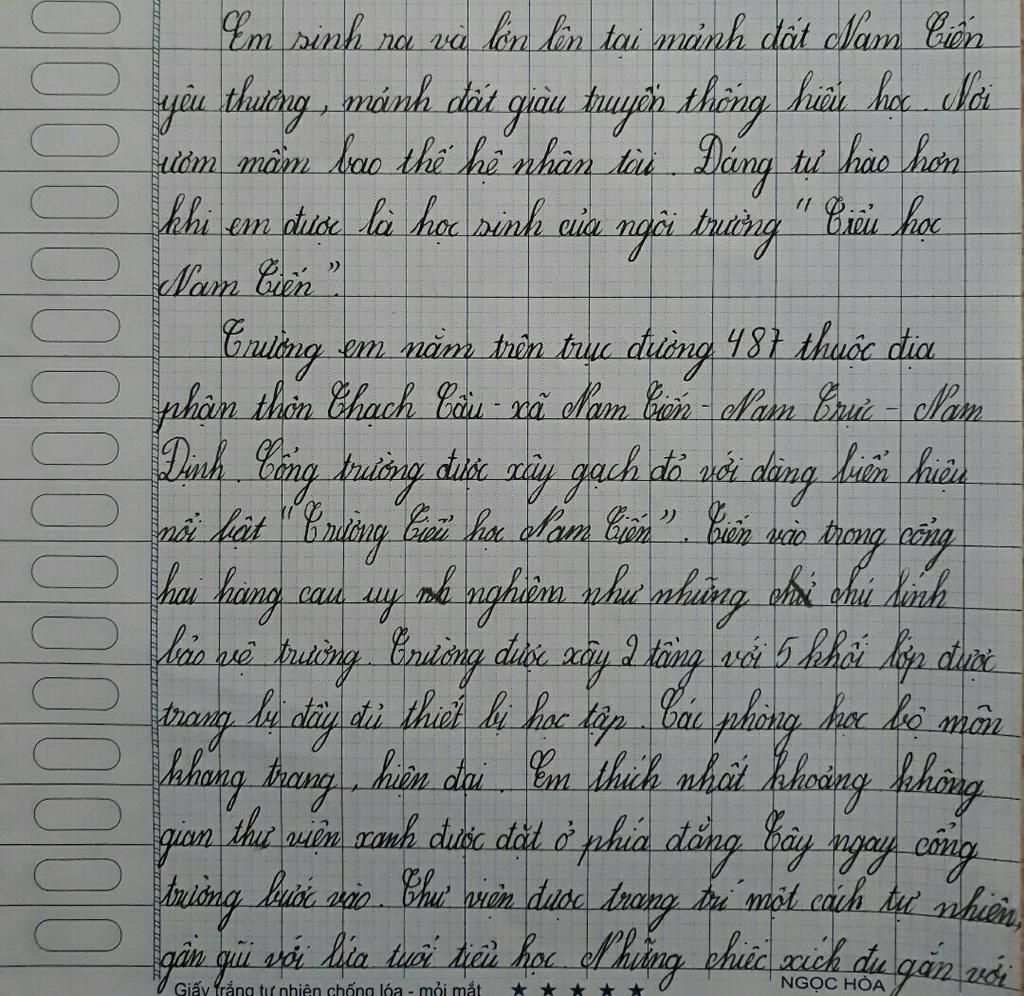 Em sinh ra và lớn lên tại mảnh đất Nam Tiến
yêu thương, mảnh đất giàu truyền thống hiếu học. Nơi
ươm mầm bao thế hệ nhân tài. Đáng tự hào hơn
khi em được là học sinh của ngôi trường "Tiểu học
Nam Tiến".
Trường em nằm trên trục đường 487 thuộc địa
phận thôn Thạch Cầu - xã Nam Tiến - Nam Trực - Nam
Định. Cổng trường được xây gạch đỏ với dàng biển hiệu
nổi bật "Trường Tiểu học Nam Tiến". Tiến vào trong cổng
hai hàng cau uy nghiêm như những chú lính
bảo vệ trường. Trường được xây 2 tầng với 5 khối lớp được
trang bị đầy đủ thiết bị học tập. Các phòng học bộ môn
khang trang, hiện đại. Em thích nhất khoảng không
gian thư viện xanh được đặt ở phía đằng Tây ngay cổng
trường bước vào. Thư viện được trang trí một cách tự nhiên,
gần gũi với lứa tuổi tiểu học. Những chiếc xích đu gắn với
Giấy trắng tự nhiên chống lóa - mỏi mắt ★ ★ ★ ★ ★ NGỌC HÒA